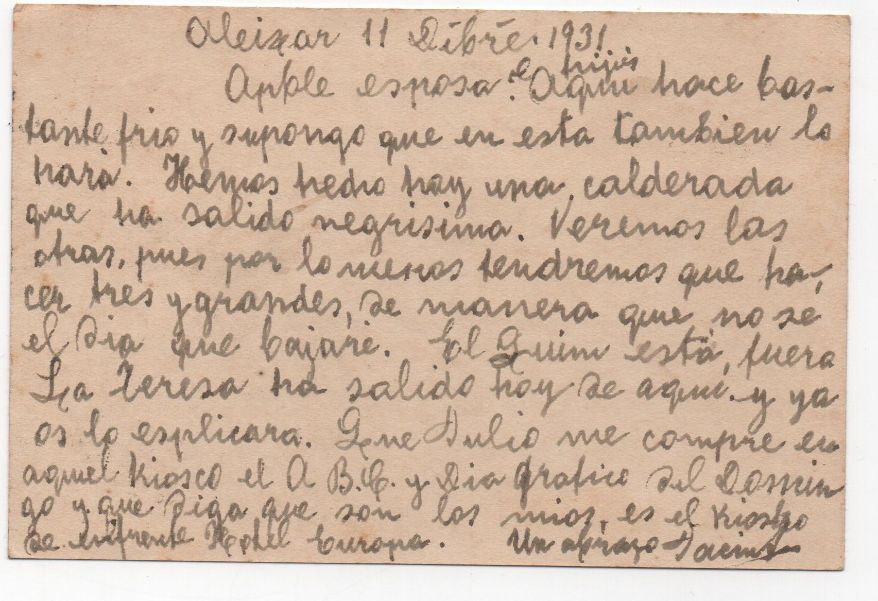 Aleixar 11 Dibre. 1931
Apble esposa e hijos. Aquí hace bas-
tante frio y supongo que en esta tambien lo
hará. Hemos hecho hoy una calderada
que ha salido negrisima. Veremos las
otras, pues por lo menos tendremos que ha-
cer tres y grandes, de manera que no se
el dia que bajaré. El Quim está fuera
La Teresa ha salido hoy de aquí y ya
os lo esplicara. Que Julio me compre en
aquel Kiosco el A B.C. y Dia Grafico del Domin
go y que diga que son los mios, es el Kiosko
de enfrente Hotel Europa. Un abrazo Jacinto